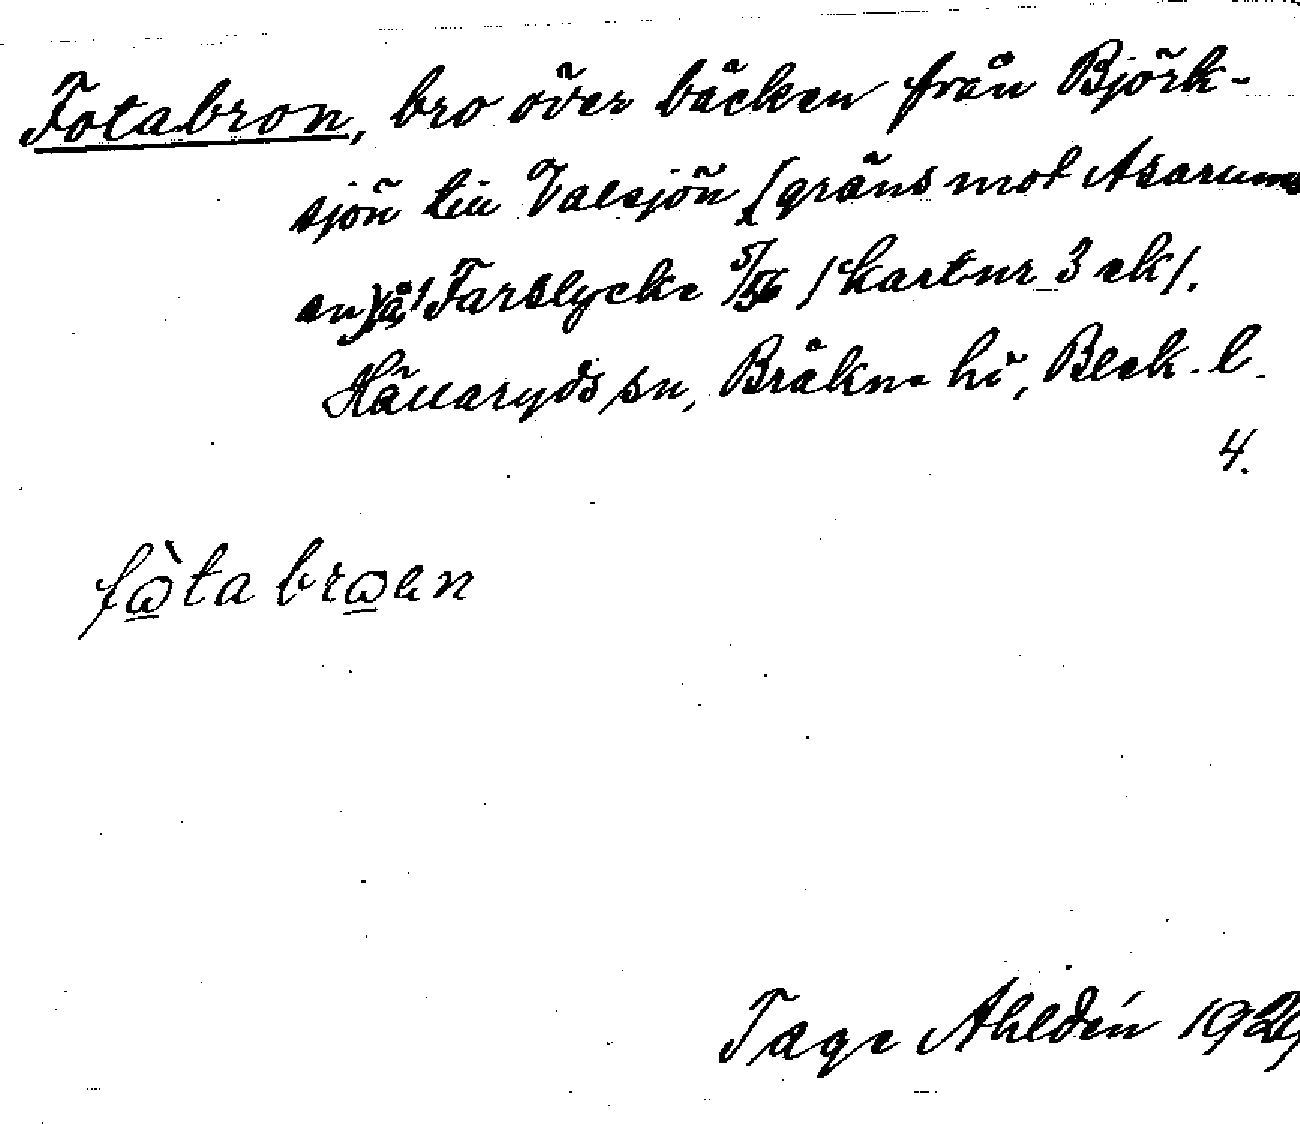 Fotabron, bro över bäcken från Björk-
sjön till Valsjön (gräns mot Asarums
sn) å Farslycke 5/56 /kartnr 3 ek/.
Hällaryds sn, Bräkne hd, Blek. l.
4.
fὼ̲ta brω̲en
Tage Ahldén 1929